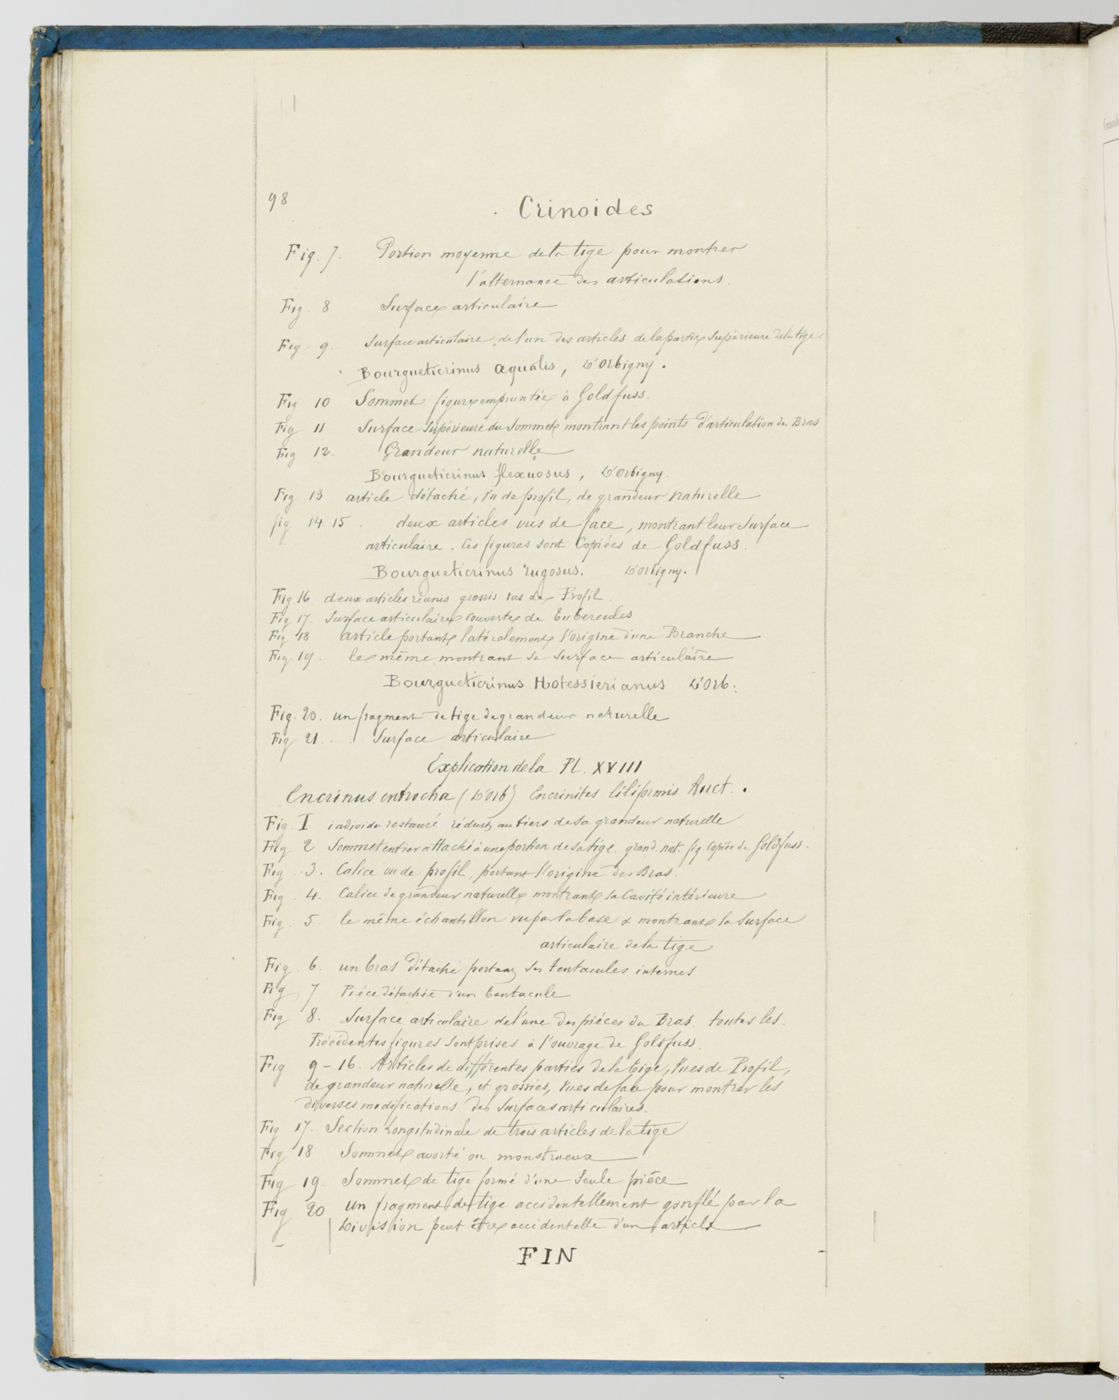 98
Crinoides
Fig. 7. Portion moyenne de la tige pour montrer
l'alternance des articulations.
Fig. 8 Surface articulaire
Fig. 9. Surface articulaire, de l'un des articles de la partie Supérieure de la tige
Bourgueticrinus æqualis, D'Orbigny.
Fig 10 Sommet figure empruntée à Goldfuss.
Fig 11 Surface Supérieure du Sommet montrant les points d'articulation des Bras
Fig 12. Grandeur naturelle
Bourgueticrinus flexuosus, D'Orbigny.
Fig 13 article détaché, vu de profil, de grandeur naturelle
fig 14 15. deux articles vus de face, montrant leur Surface
articulaire. Ces figures sont Copiées de Goldfuss.
Bourgueticrinus rugosus. D'Orbigny.
Fig 16 deux articles réunis grossis vus de Profil.
Fig 17. Surface articulaire couverte de tubercules
Fig 18 article portant latéralement l'origine d'une Branche
Fig. 19. le même montrant sa Surface articulaire
Bourgueticrinus Hotessierianus D'Orb.
Fig. 20. un fragment de tige de grandeur naturelle
Fig 21. Surface articulaire
Explication de la Pl. XVIII
Encrinus entrocha (D'Orb) Encrinites liliformis Auct.
Fig. I individu restauré réduit au tiers de sa grandeur naturelle
Fig 2 Sommet entier attaché à une portion de sa tige. grand. nat. fig Copiée de Goldfuss.
Fig. 3. Calice vu de profil, portant l'origine des Bras
Fig. 4. Calice de grandeur naturelle montrant sa Cavité intérieure
Fig. 5. le même échantillon vu par la base & montrant la Surface
articulaire de la tige
Fig. 6. un bras détaché portant ses tentacules internes
Fig 7 Pièce détachée d'un tentacule
Fig 8. Surface articulaire de l'une des pièces du Bras. toutes les
Précédentes figures sont prises à l'ouvrage de Goldfuss.
Fig 9-16. Articles de différentes parties de la tige, Vues de Profil,
de grandeur naturelle, et grossies, Vues de face pour montrer les
diverses modifications des Surfaces articulaires.
Fig 17. Section Longitudinale de trois articles de la tige
Fig 18 Sommet avorté ou monstrueux
Fig 19. Sommet de tige formé d'une Seule pièce
Fig 20 un fragment de tige accidentellement gonflé par la
Division peut être accidentelle d'un article
FIN